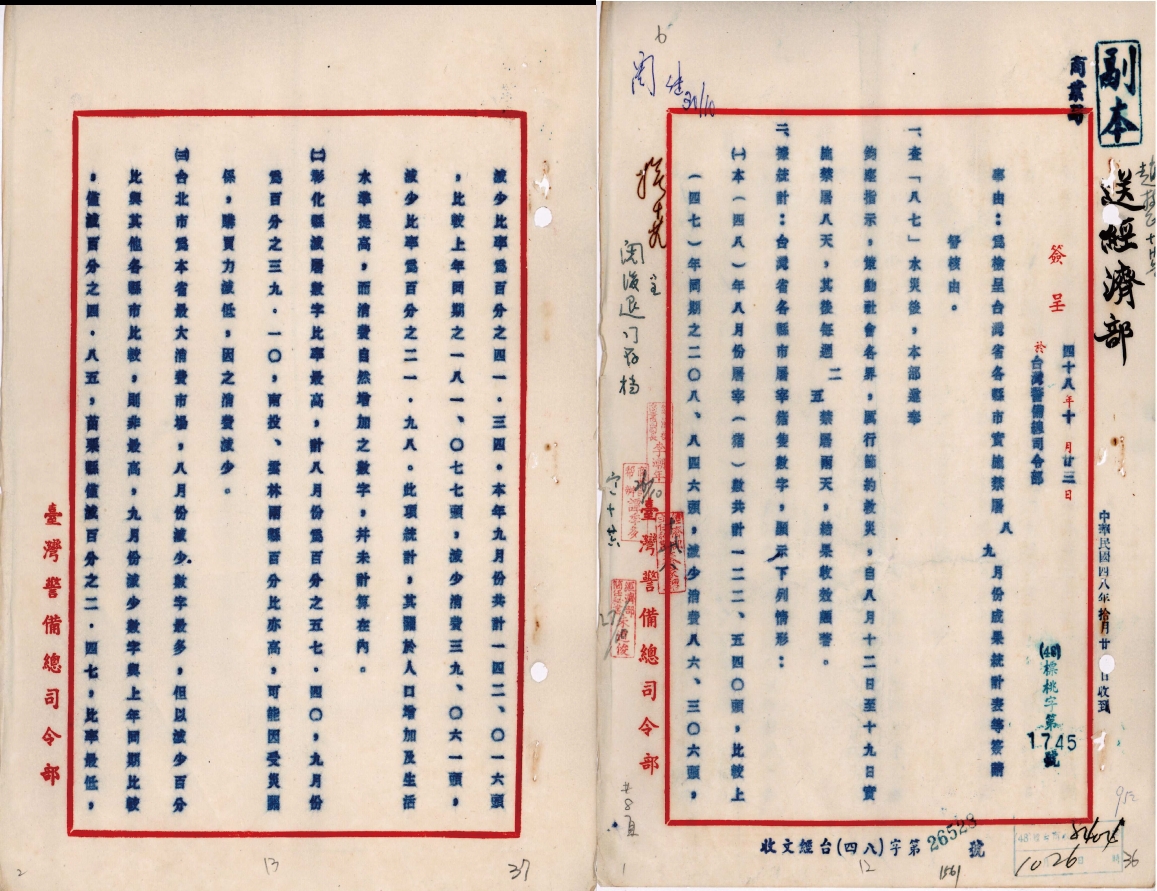 副本
商業司
送經濟部
簽呈
四十八年十月廿三日
於台灣警備總司令部
中華民國四八年拾月廿日收到
(48)標桃字第1745號
事由：爲檢呈台灣省各縣市實施禁屠八九月份成果統計表等簽請
督核由。
一、查「八七」水災後，本部遵奉
鈞座指示，策動社會各界，厲行節約救災，自八月十二日至十九日實
施禁屠八天，其後每週二五禁屠兩天，結果收效頗著。
二、據統計：台灣省各縣市屠宰猪隻數字，顯示下列情形：
㈠本（四八）年八月份屠宰（猪）數共計一二二、五四〇頭，比較上
（四七）年同期之二〇八、八四六頭，減少消費八六、三〇六頭，
臺灣警備總司令部
收文經台(四八)字第26528號
1026
共8頁
12
36
1
減少比率爲百分之四一．三四。本年九月份共計一四二、〇一六頭
，比較上年同期之一八一、〇七七頭，減少消費三九、〇六一頭，
減少比率爲百分之二一．九八。此項統計，其關於人口增加及生活
水準提高，而消費自然增加之數字，并未計算在內。
㈡彰化縣減屠數字比率最高，計八月份爲百分之五七．四〇，九月份
爲百分之三九．一〇，南投、雲林兩縣百分比亦高，可能因受災關
係，購買力減低，因之消費減少。
㈢台北市爲本省最大消費市場，八月份減少數字最多，但以減少百分
比與其他各縣市比較，則非最高，九月份減少數字與上年同期比較
，僅減百分之四．八五，苗栗縣僅減百分之二．四七，比率最低，
臺灣警備總司令部
13
37
2